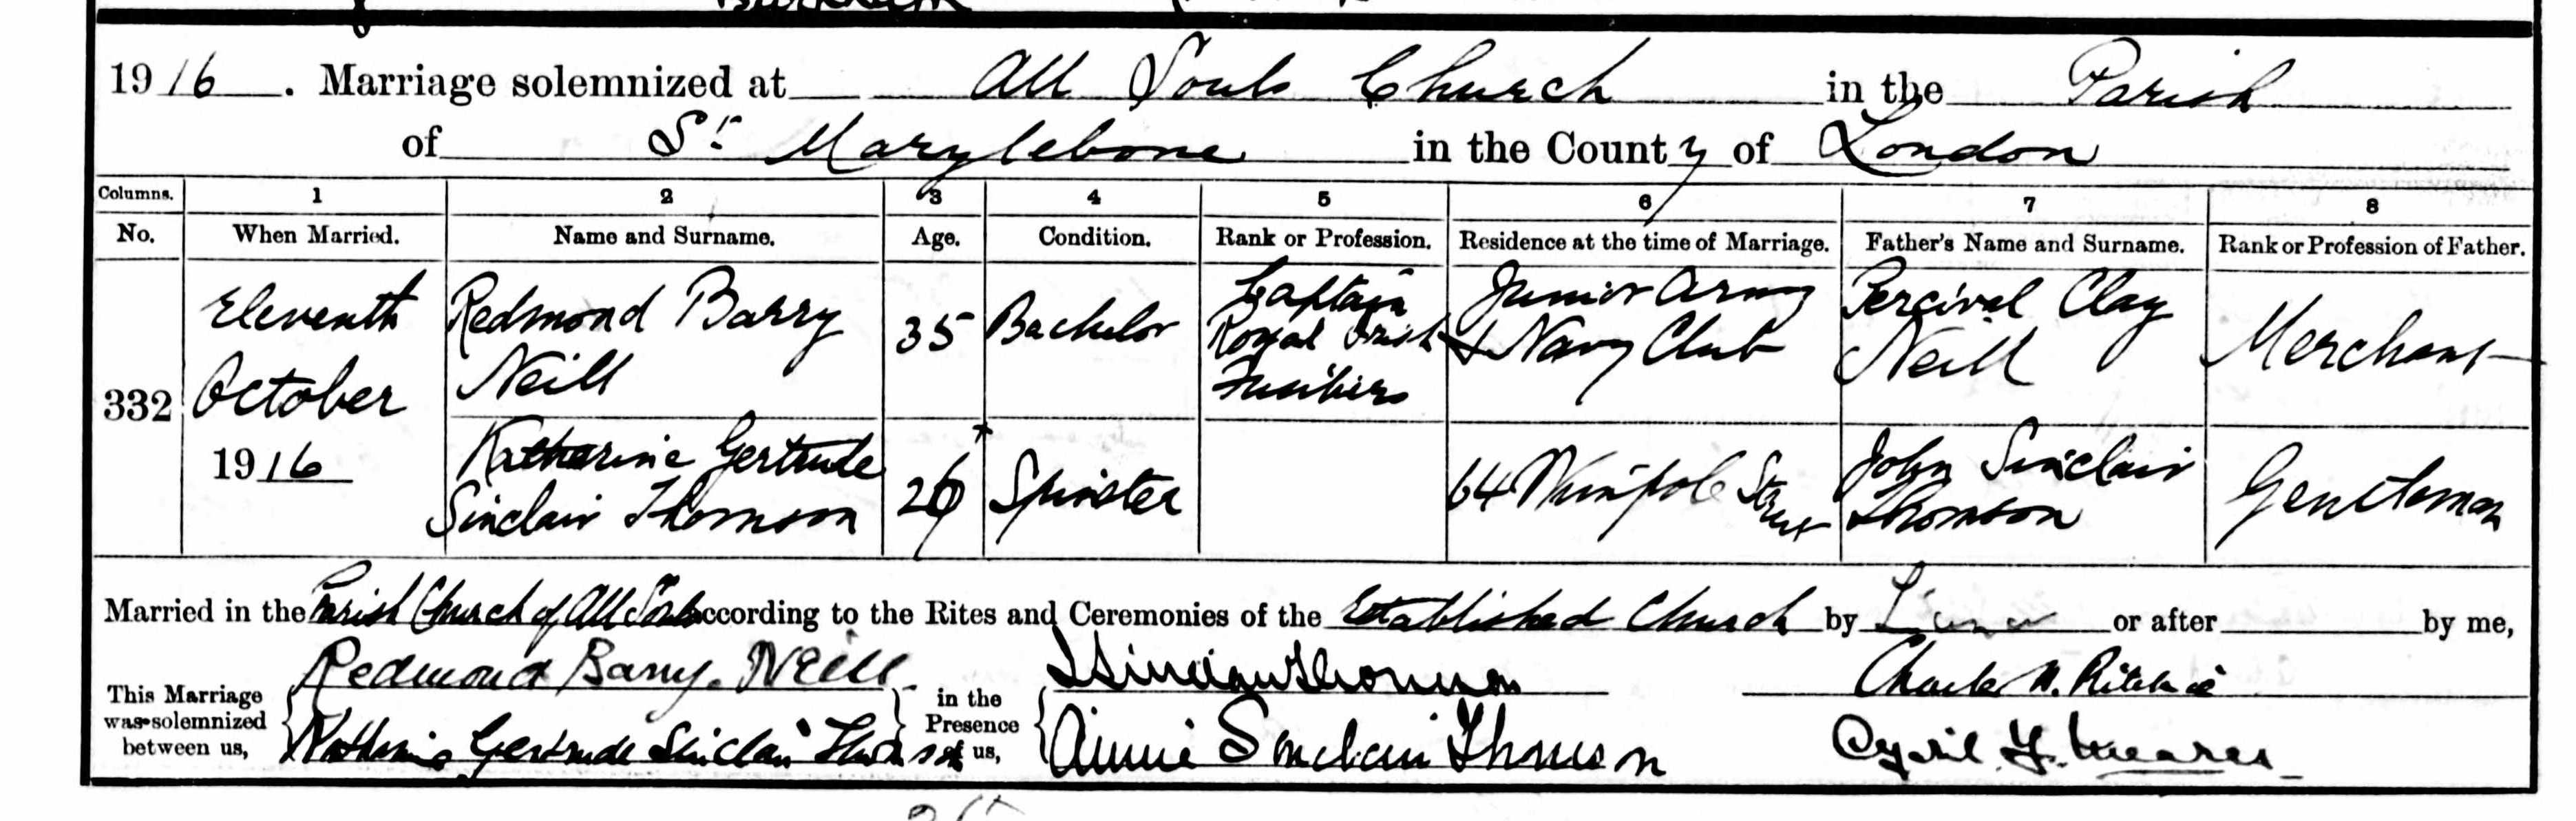 1916. Marriage solemnized at All Souls Church in the Parish
of St. Marylebone in the County of London
Columns. 1 2 3 4 5 6 7 8
No. When Married. Name and Surname. Age. Condition. Rank or Profession. Residence at the time of Marriage. Father's Name and Surname. Rank or Profession of Father.
332 Eleventh October 1916
Redmond Barry
Neill
35
Bachelor
Captain
Royal Irish
Fusiliers
Junior Army
& Navy Club
Percival Clay
Neill
Merchant
Katharine Gertrude
Sinclair Thomson
26
Spinster
64 Wimpole Street
John Sinclair
Thomson
Gentleman
Married in the Parish Church of All Souls according to the Rites and Ceremonies of the Established Church by Licence or after by me,
This Marriage was solemnized between us,
Redmond Barry Neill
Katharine Gertrude Sinclair Thomson
in the Presence of us,
Sinclair Thomson
Annie Sinclair Thomson
Charles N. Ritchie
Cyril Y. Meares